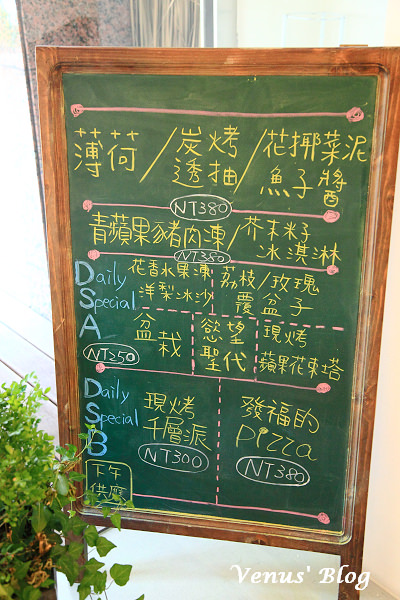 薄荷/炭烤透抽/花椰菜泥魚子醬
NT380
青蘋果豬肉凍/芥末籽冰淇淋
NT380
Daily Special A
NT250
花香水果凍
洋梨冰沙
荔枝/玫瑰
覆盆子
盆栽
慾望聖代
現烤
蘋果花東塔
Daily Special B
現烤
千層派
NT300
發福的
pizza
NT380
下午供應
Venus' Blog